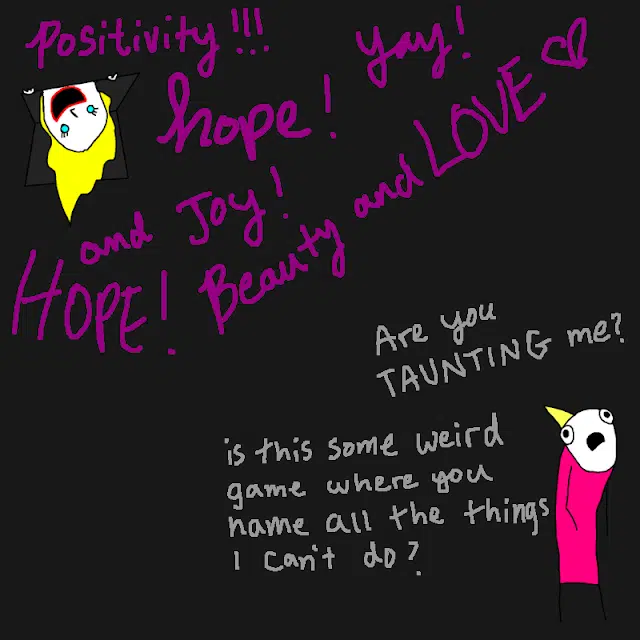 Positivity!!!
yay!
hope!
and Joy!
HOPE! Beauty and LOVE
Are you
TAUNTING me?
is this some weird
game where you
name all the things
I can't do?